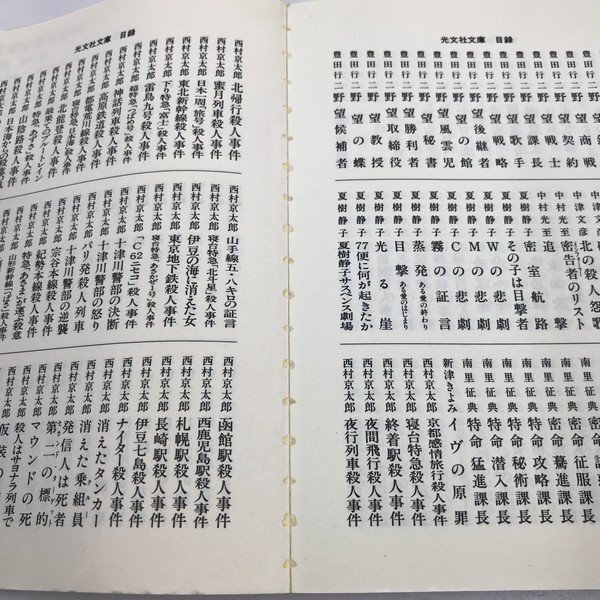 光文社文庫　目録
豊田行二　野望商戦
豊田行二　野望契約
豊田行二　野望課長
豊田行二　野望歌手
豊田行二　野望戦略
豊田行二　野望後継者
豊田行二　野望の館
豊田行二　野望風雲児
豊田行二　野望勝利者
豊田行二　野望秘書
豊田行二　野望取締役
豊田行二　野望教授
豊田行二　野望の蝶
豊田行二　野望候補者
中津文彦　北の殺人怨歌
中村光至　密告者のリスト
中村光至　密室航路
夏樹静子　その子は目撃者
夏樹静子　Wの悲劇
夏樹静子　Mの悲劇
夏樹静子　Cの悲劇
夏樹静子　霧の証言
夏樹静子　蒸発　ある愛の終わり
夏樹静子　目撃　ある愛のはじまり
夏樹静子　光る崖
夏樹静子　77便に何が起きたか
夏樹静子　夏樹静子サスペンス劇場
南里征典　密命征服課長
南里征典　密命驀進課長
南里征典　特命攻略課長
南里征典　特命秘術課長
南里征典　特命潜入課長
南里征典　特命猛進課長
新津きよみ　イヴの原罪
西村京太郎　京都感情旅行殺人事件
西村京太郎　寝台特急殺人事件
西村京太郎　終着駅殺人事件
西村京太郎　夜間飛行殺人事件
西村京太郎　夜行列車殺人事件
光文社文庫　目録
西村京太郎　北帰行殺人事件
西村京太郎　蜜月列車殺人事件
西村京太郎　日本一周「旅号」殺人事件
西村京太郎　東北新幹線殺人事件
西村京太郎　雷鳥九号殺人事件
西村京太郎　下り特急「富士」殺人事件
西村京太郎　超特急「つばめ号」殺人事件
西村京太郎　神話列車殺人事件
西村京太郎　高原鉄道殺人事件
西村京太郎　都電荒川線殺人事件
西村京太郎　寝台特急「日本海」殺人事件
西村京太郎　北能登殺人事件
西村京太郎　特急「あずさ」殺人事件
西村京太郎　最果てのブルートレイン
西村京太郎　山陰路殺人事件
西村京太郎　日本海からの殺意
西村京太郎　山手線五・八キロの証言
西村京太郎　寝台特急「北斗星」殺人事件
西村京太郎　伊豆の海に消えた女
西村京太郎　東京地下鉄殺人事件
西村京太郎　寝台特急「あさかぜ1号」殺人事件
西村京太郎　「C62ニセコ」殺人事件
西村京太郎　十津川警部の決断
西村京太郎　十津川警部の怒り
西村京太郎　パリ発殺人列車
西村京太郎　十津川警部の逆襲
西村京太郎　宗谷本線殺人事件
西村京太郎　紀勢本線殺人事件
西村京太郎　特急「あさま」が運ぶ殺意
西村京太郎　山形新幹線「つばさ」殺人事件
西村京太郎　函館駅殺人事件
西村京太郎　西鹿児島駅殺人事件
西村京太郎　札幌駅殺人事件
西村京太郎　長崎駅殺人事件
西村京太郎　伊豆七島殺人事件
西村京太郎　ナイター殺人事件
西村京太郎　消えたタンカー
西村京太郎　消えた乗組員
西村京太郎　発信人は死者
西村京太郎　第二の標的
西村京太郎　マウンドの死
西村京太郎　殺人はサヨナラ列車で
西村京太郎　仮装の